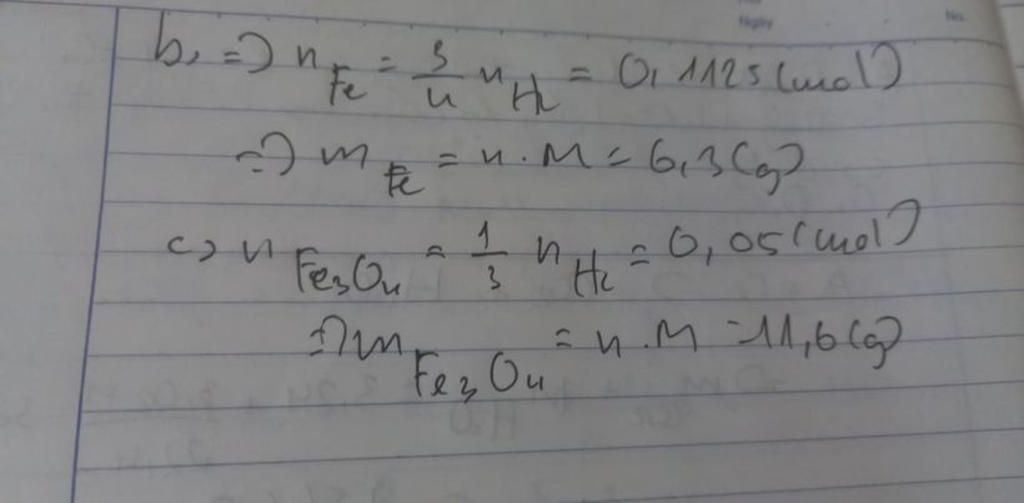 Ngày No.
b, => n Fe = 3/4 n H2 = 0,1125 (mol)
=> m Fe = n . M = 6,3 (g)
c) n Fe3O4 = 1/3 n H2 = 0,05 (mol)
=> m Fe3O4 = n . M = 11,6 (g)